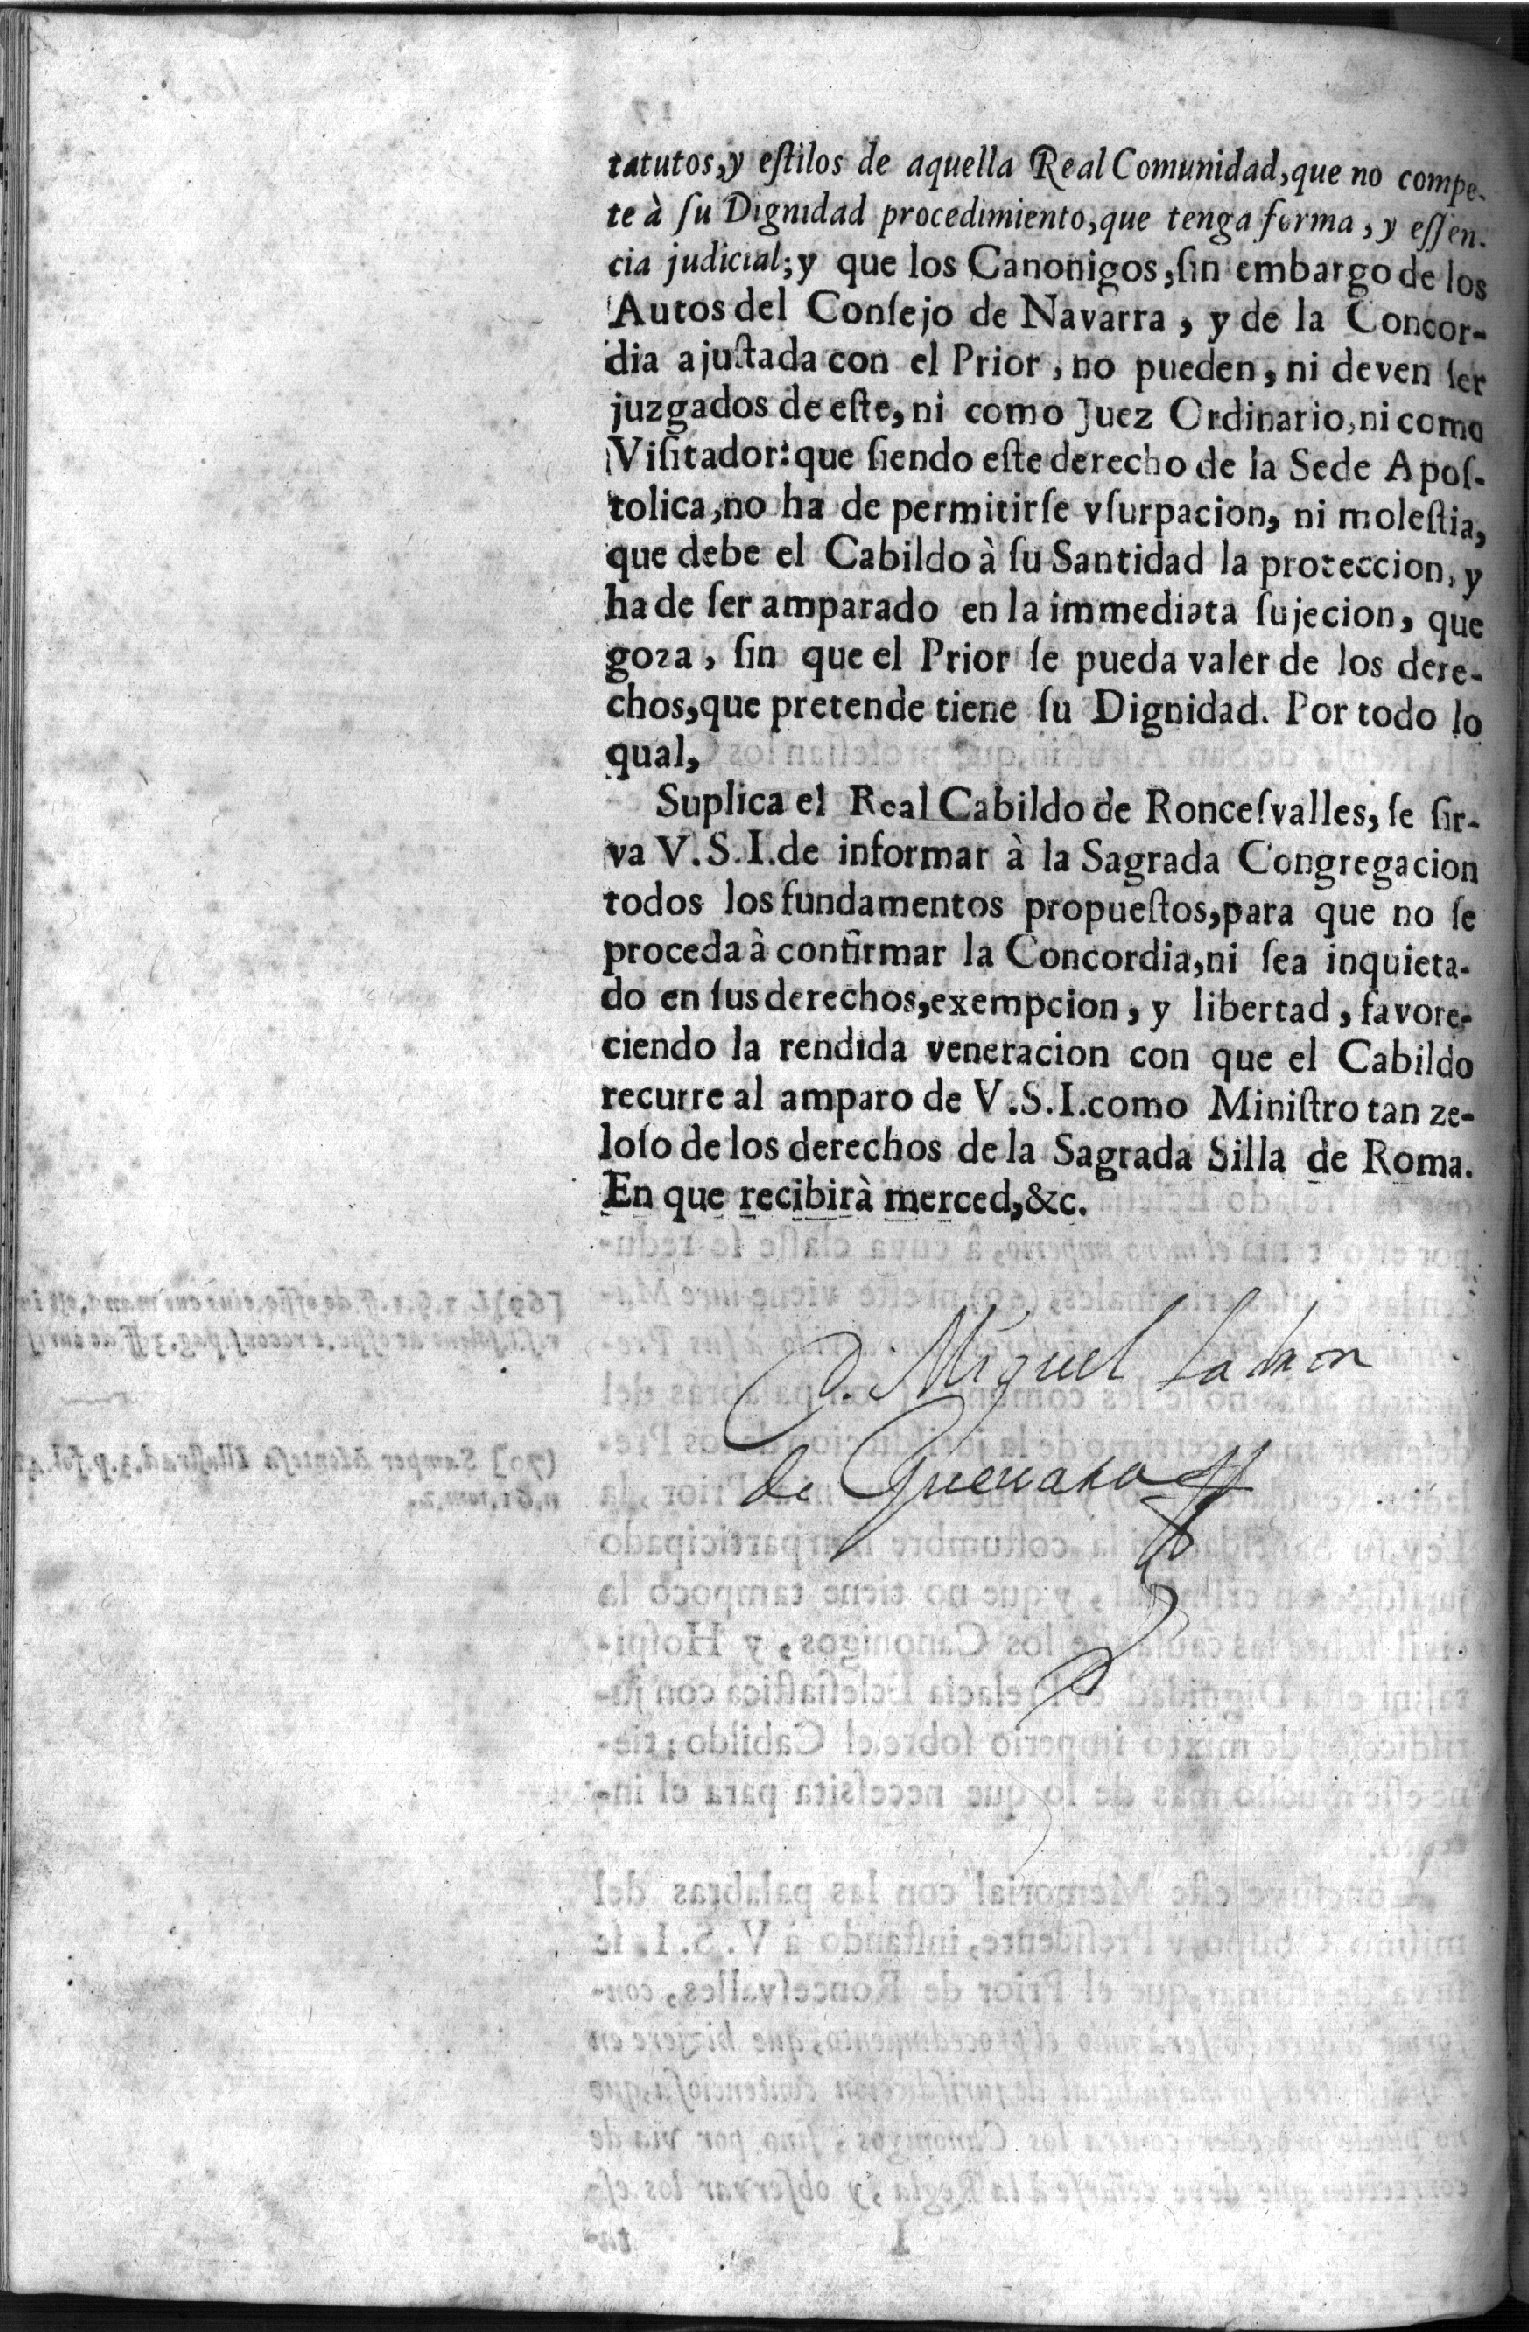 tatutos, y eſtilos de aquella Real Comunidad, que no compe-
te à ſu Dignidad procedimiento, que tenga forma, y eſſen-
cia judicial; y que los Canonigos, ſin embargo de los
Autos del Conſejo de Navarra, y de la Concor-
dia ajuſtada con el Prior, no pueden, ni deven ſer
juzgados de eſte, ni como Juez Ordinario, ni como
Viſitador: que ſiendo eſte derecho de la Sede Apoſ-
tolica, no ha de permitirſe vſurpacion, ni moleſtia,
que debe el Cabildo à ſu Santidad la proteccion, y
ha de ſer amparado en la immediata ſujecion, que
goza, ſin que el Prior ſe pueda valer de los dere-
chos, que pretende tiene ſu Dignidad. Por todo lo
qual,
Suplica el Real Cabildo de Ronceſvalles, ſe ſir-
va V.S.I. de informar à la Sagrada Congregacion
todos los fundamentos propueſtos, para que no ſe
proceda à confirmar la Concordia, ni ſea inquieta-
do en ſus derechos, exempcion, y libertad, favore-
ciendo la rendida veneracion con que el Cabildo
recurre al amparo de V.S.I. como Miniſtro tan ze-
loſo de los derechos de la Sagrada Silla de Roma.
En que recibirà merced, &c.
D. Miguel Ladron
de Guevara